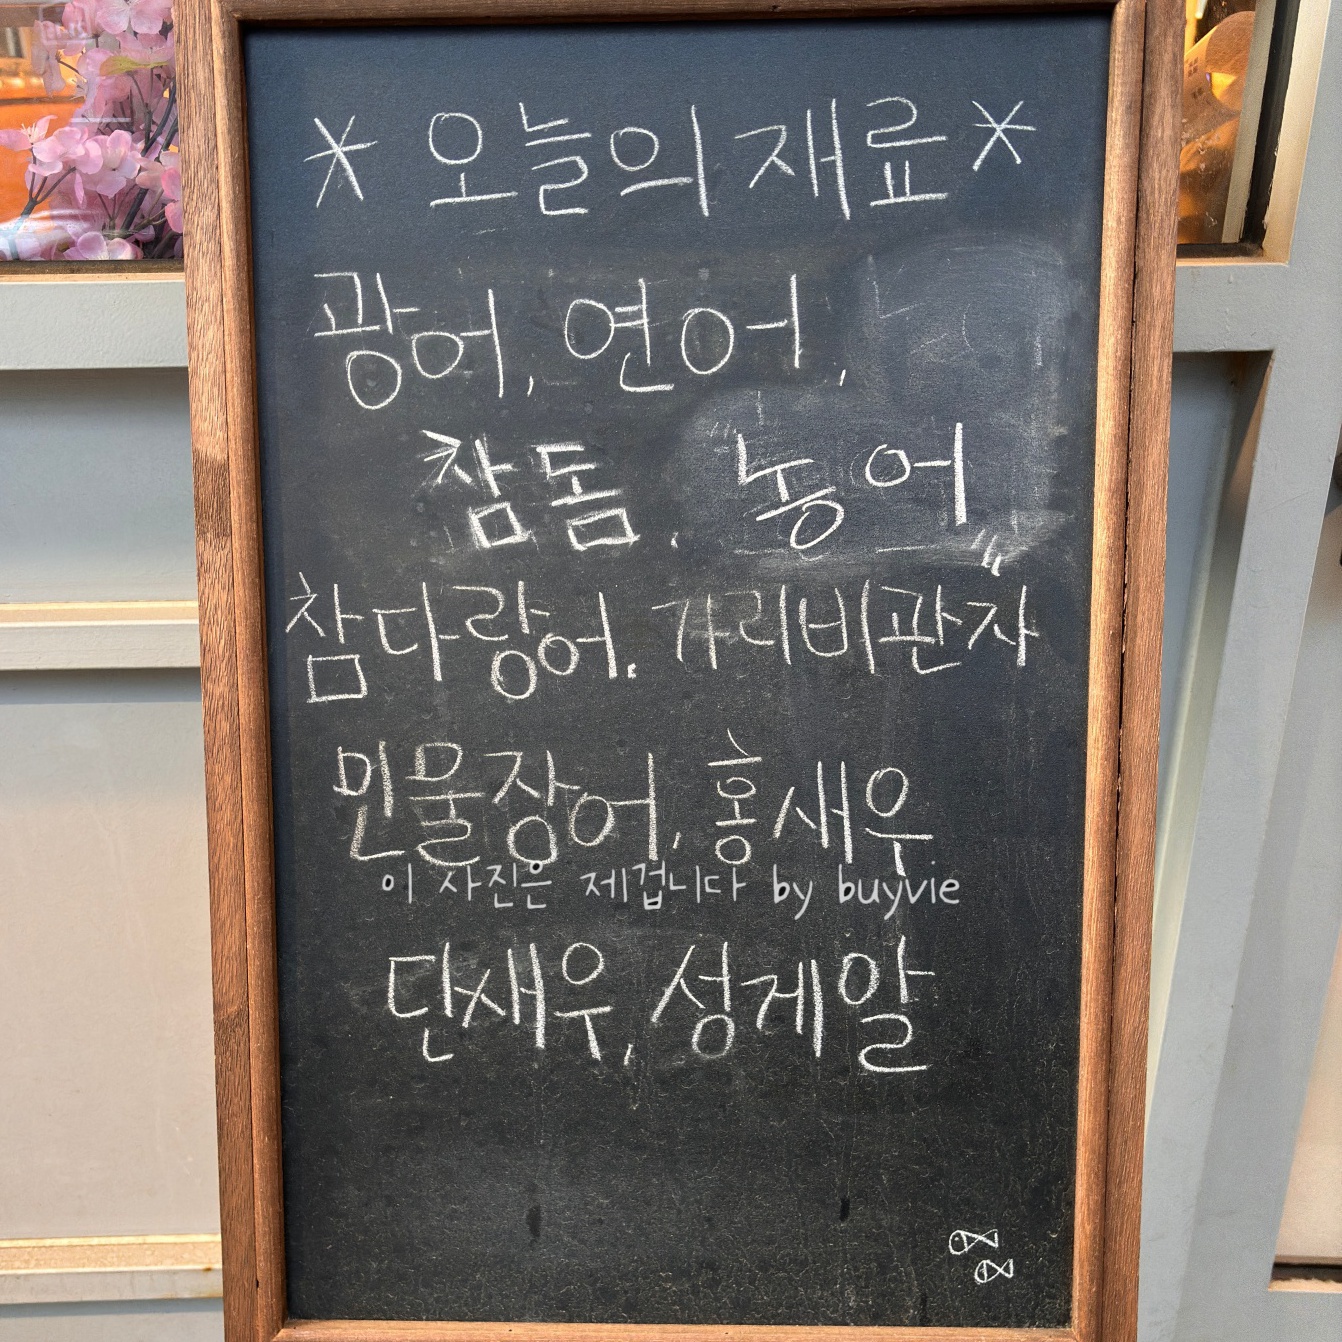 * 오늘의 재료 *
광어, 연어,
참돔, 농어
참다랑어, 가리비관자
민물장어, 홍새우
이 사진은 제겁니다 by buyvie
단새우, 성게알